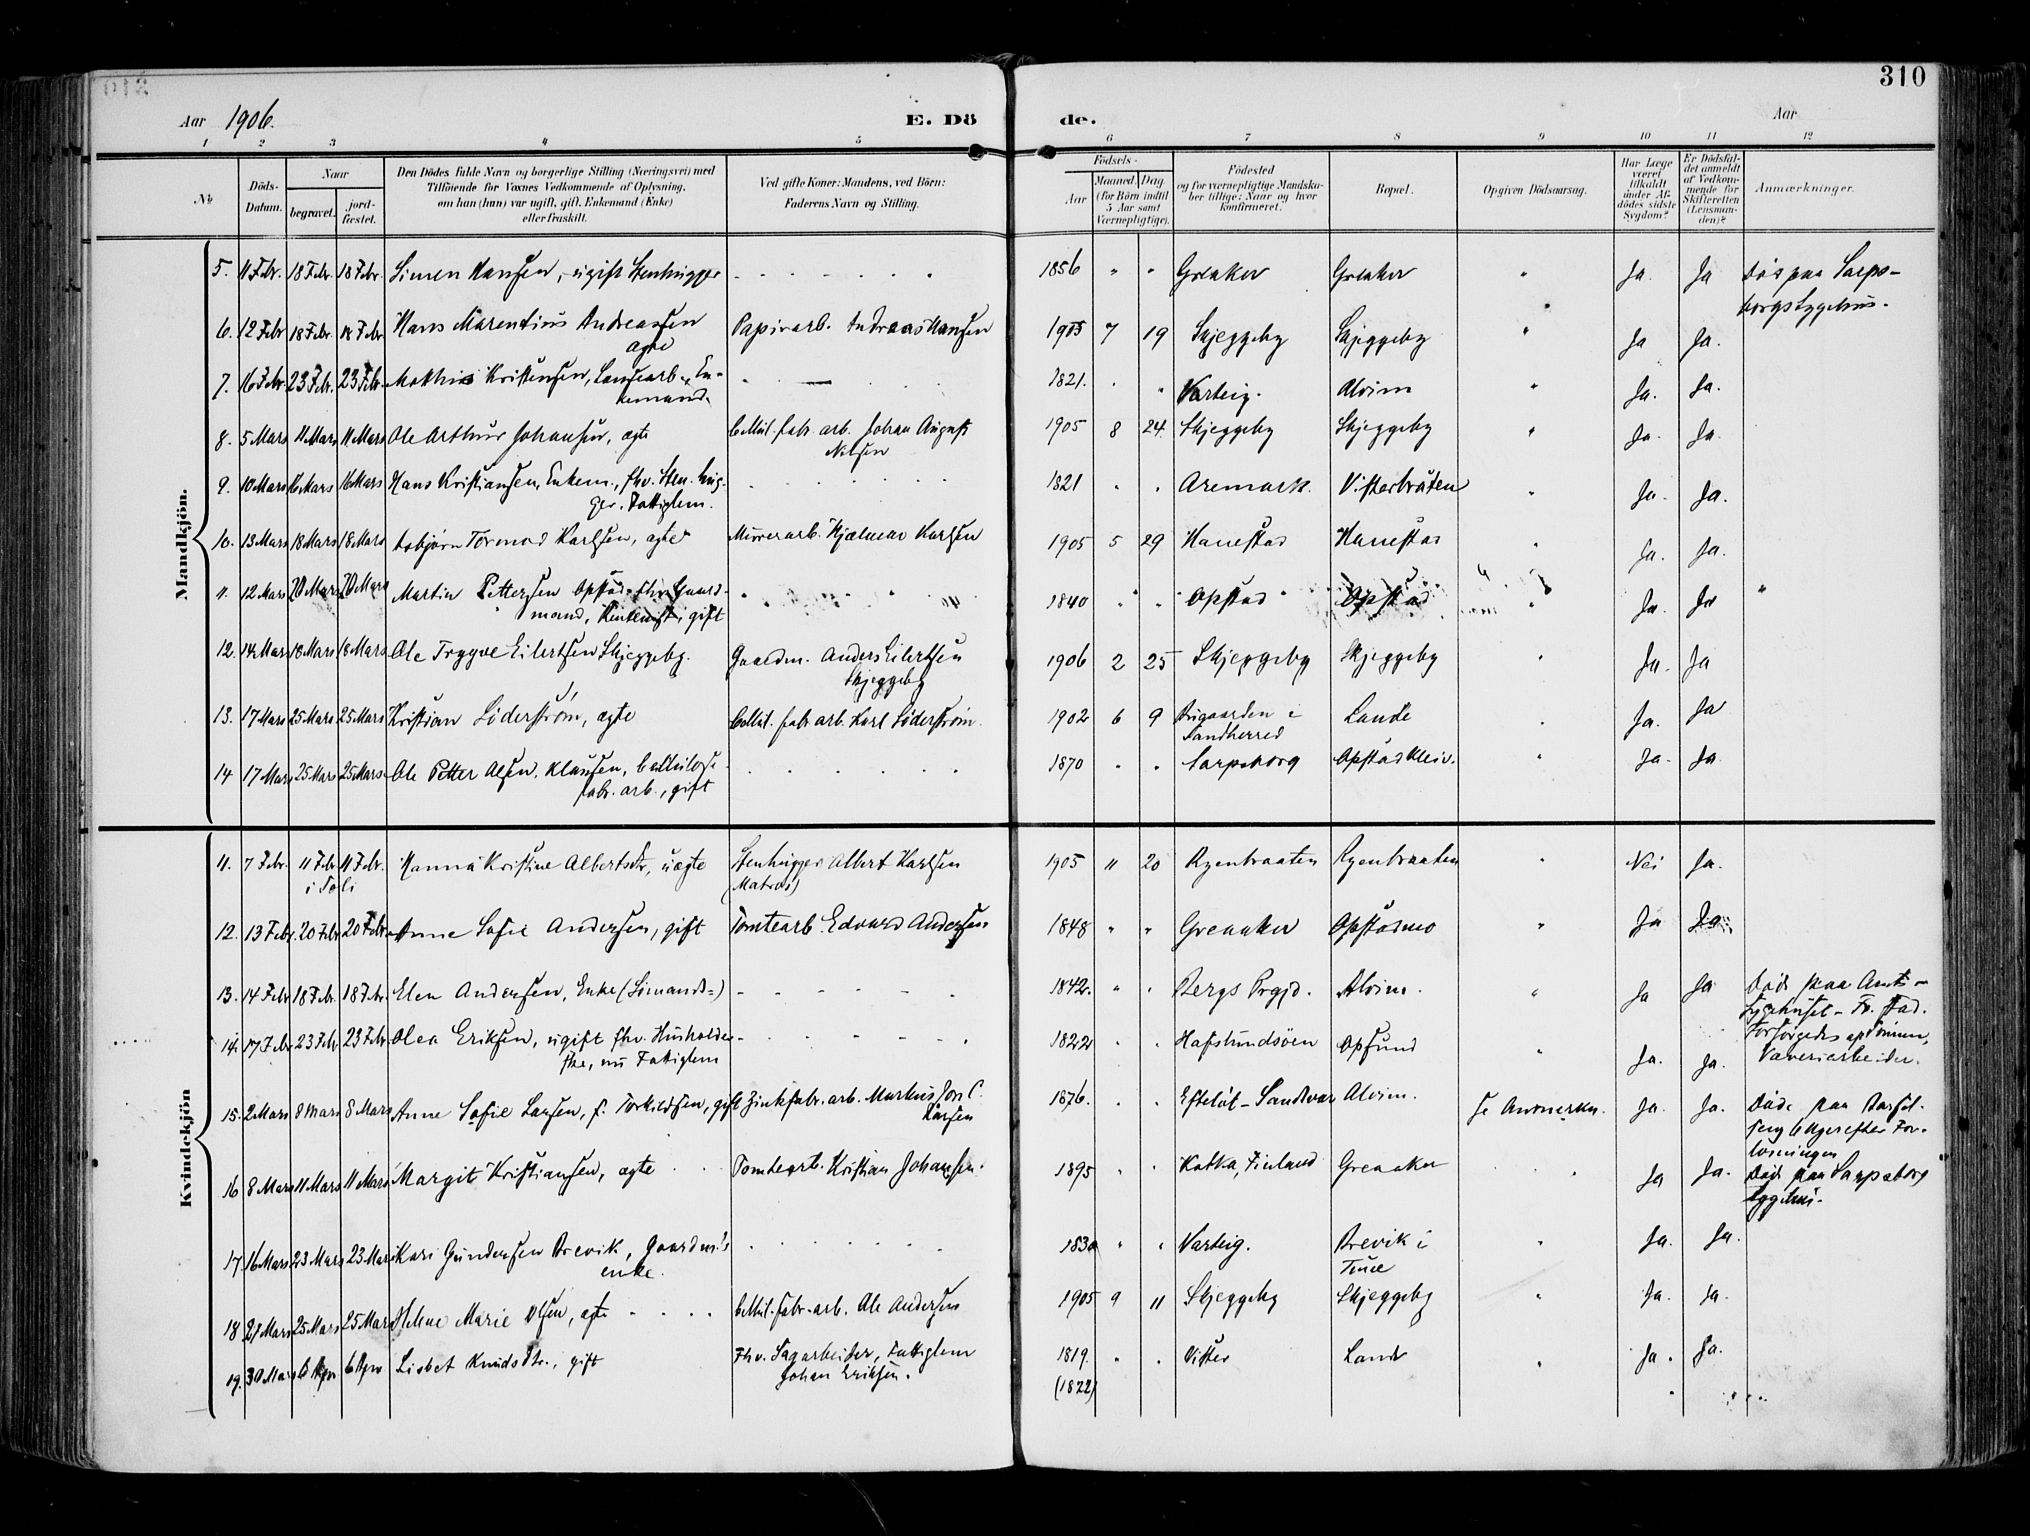 310
Aar 1906.
E. Dö
de.
Aar
1 2 3 4 5 6 7 8 9 10 11 12
No
Döds-Datum.
Naar
begravet.
jord-fæstet.
Den Dödes fulde Navn og borgerlige Stilling (Næringsvei) med
Tilföiende for Voxnes Vedkommende af Oplysning,
om han (hun) var ugift, gift, Enkemand (Enke)
eller fraskilt.
Ved gifte Koner: Mandens, ved Börn:
Faderens Navn og Stilling.
Födsels-
Aar
Maaned. Dag.
(for Börn indtil
5 Aar samt
Værnepligtige).
Födested
og for værnepligtige Mandska-
ber tillige: Naar og hvor
konfirmeret.
Bopæl.
Opgiven Dödsaarsag.
Har Læge
været
tilkaldt
under Af-
dödes sidste
Sygdom?
Er Dödsfal-
det anmeldt
af Vedkom-
mende for
Skifteretten
(Lensman-
den)?
Anmærkninger.
Mandkjön.
5. 11 Febr. 18 Febr. 18 Febr. Simen Hansen, ugift Stenhugger 1856 " " Greaker Greaker " Ja. Ja Død paa Sarps-
borg Sygehus.
6. 12 Febr 18 Febr. 18 Febr. Hans Marentius Andreassen Papirarb. Andreas Hansen 1905 7 19 Skjeggeby Skjeggeby " Ja Ja.
ægte
7. 16 Febr. 23 Febr. 23 Febr. Mathis Kristensen, Lænsearb., En- 1821. " " Varteig. Alvim " Ja. Ja.
kemand.
8. 5 Mars 11 Mars 11 Mars Ole Arthur Johansen, ægte Cellul. fabr. arb. Johan August 1905 8 24. Skjeggeby Skjeggeby " Ja. Ja.
Nilsen
9. 10 Mars 16 Mars 16 Mars Hans Kristiansen, Enkem., fhv. Stenhug- 1821 " " Aremark. Visterbråten " Ja. Ja.
ger. Fattiglem.
10. 13 Mars 18 Mars 18 Mars Asbjørn Tormod Karlsen, ægte Murerarb. Hjælmar Karlsen 1905 5 29 Hanestad Hanestad " Ja. Ja.
11. 12 Mars 20 Mars 20 Mars Martin Pettersen Opstad, fhv. Gaard- 1840 " " Opstad Opstad " Ja. Ja "
mand, Rentenist, gift
12. 14 Mars 18 Mars 18 Mars Ole Trygve Eilertsen Skjeggeby. Gaardm. Anders Eilertsen 1906 2 25 Skjeggeby Skjeggeby " Ja. Ja
Skjeggeby
13. 17 Mars 25 Mars 25 Mars Kristian Söderström, ægte Cellul. fabr. arb. Karl Söderström. 1902 6 9 Brigaarden i Lande " Ja. Ja
Sandherred
14 17 Mars 25 Mars 25 Mars Ole Petter Olsen Klausen, Cellulose- 1870 " " Sarpsborg Opstadkleiv. " Ja. Ja
fabr. arb., gift
Kvindekjön
11. 7 Febr. 11 Febr 11 Febr. Hanna Kristine Albertsdtr, uægte Stenhugger Albert Karlsen 1905 11 20 Ryenbraaten Ryenbraaten " Nei Ja.
i Soli (Matros)
12. 13 Febr. 20 Febr 20 Febr Anne Sofie Andersen, gift Tomtearb. Edvard Andersen 1848 " " Greaaker Opstadmo " Ja Ja
13. 14 Febr 18 Febr. 18 Febr. Elen Andersen, Enke (Sømands-) 1842. " " Bergs Prgjd. Alvim. " Ja Ja Død paa Amts-
sygehuset - Fr. stad.
14. 17 Febr 23 Febr 23 Febr. Olea Eriksen, ugift fhv. Husholder- 1822 " " Hafslundsöen Opsund " Ja. Ja. Forsørgedes
ske, nu Fattiglem Væveriarbeider.
15. 2 Mars 8 Mars 8 Mars Anne Sofie Larsen, f. Torkildsen, gift Zinkfabr. arb. Markus Joh. C. 1876. " " Efteløt - Sandsvær Alvim. Se Anmerkn. Ja. Ja. Døde paa Barsel-
Larsen seng 6 Uger efter For-
løsningen
16 8 Mars 11 Mars 11 Mars Margit Kristiansen, ægte Tomtearb. Kristian Johansen. 1895 " " Kotka, Finland Greaaker " Ja Ja. Død paa Sarpsborg
Sygehus.
17. 16 Mars 23 Mars 23 Mars Kari Gundersen Brevik, Gaardm.'s 1830 " " Varteig. Brevik i " Ja. Ja.
enke. Tune
18 21 Mars 25 Mars 25 Mars Helene Marie Olsen, ægte Cellul. fabr. arb. Ole Andersen 1905 9 11 Skjeggeby Skjeggeby " Ja. Ja.
19. 30 Mars 6 Apr 6 Apr Lisbet Knudsdtr., gift Fhv. Sagarbeider, Fattiglem 1819. " " Vister Lande " Ja. Ja.
Johan Eriksen. (1822)